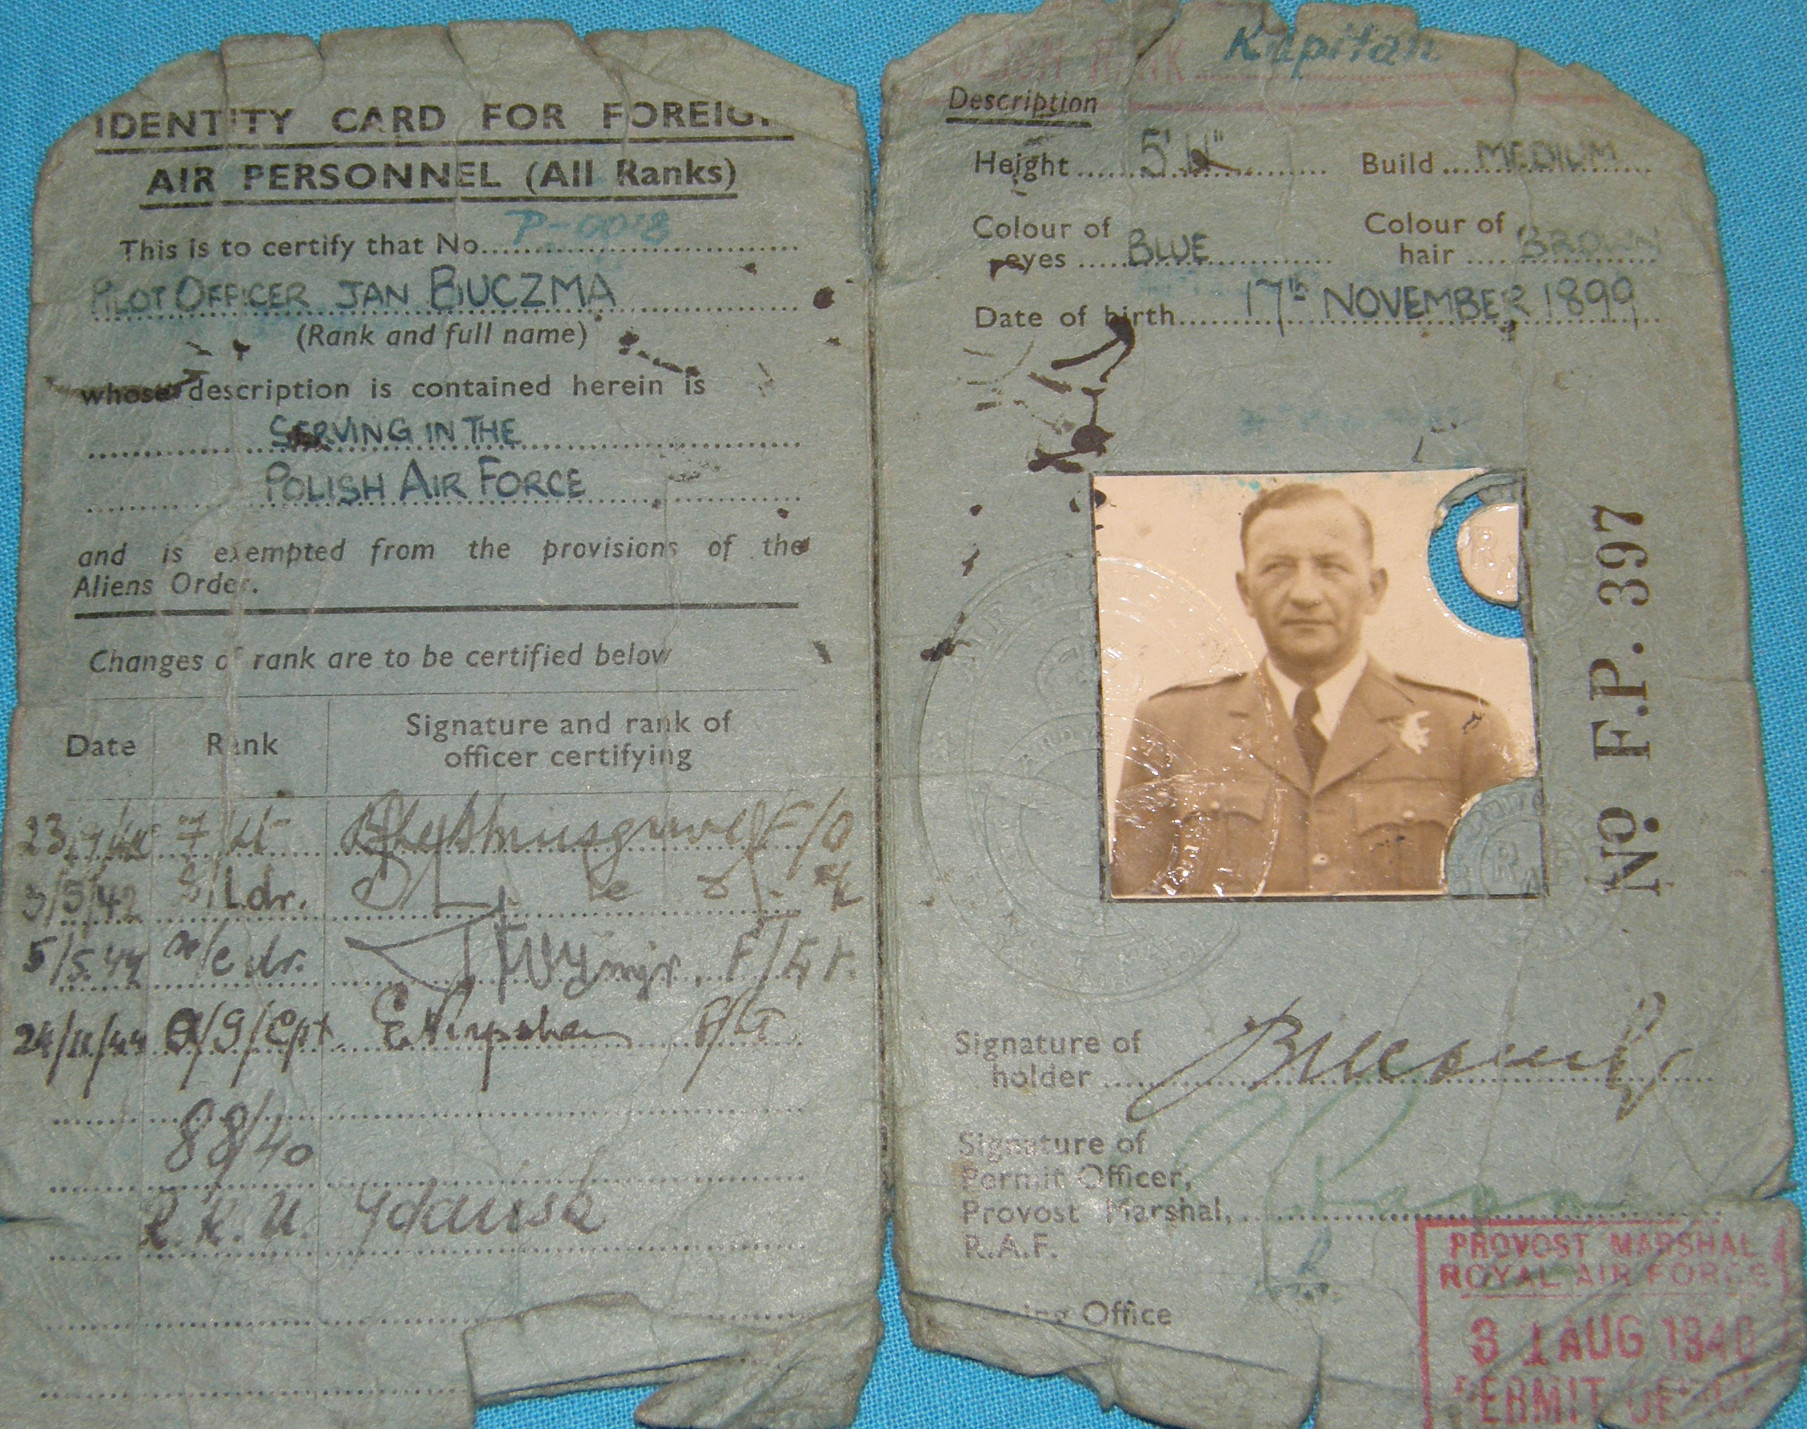 IDENTITY CARD FOR FOREIG
AIR PERSONNEL (All Ranks)
This is to certify that No. P-0018
PILOT OFFICER JAN BIUCZMA
(Rank and full name)
whose description is contained herein is
SERVING IN THE
POLISH AIR FORCE
and is exempted from the provisions of the
Aliens Order.
Changes of rank are to be certified below
Date Rank Signature and rank of
officer certifying
F/Lt F/O
3/5/42 S/Ldr.
5/5.44 W/Cdr. F/Lt.
24/11/44 A/G/Cpt
88/40
R.K.U. Gdańsk
RANK Kapitan
Description
Height 5' 11" Build MEDIUM
Colour of eyes BLUE Colour of hair BROWN
Date of birth 17th NOVEMBER 1899
No F.P. 397
Signature of
holder
Signature of
Permit Officer,
Provost Marshal,
R.A.F.
Office
PROVOST MARSHAL
ROYAL AIR FORCE
31 AUG 1940
PERMIT OFFICE